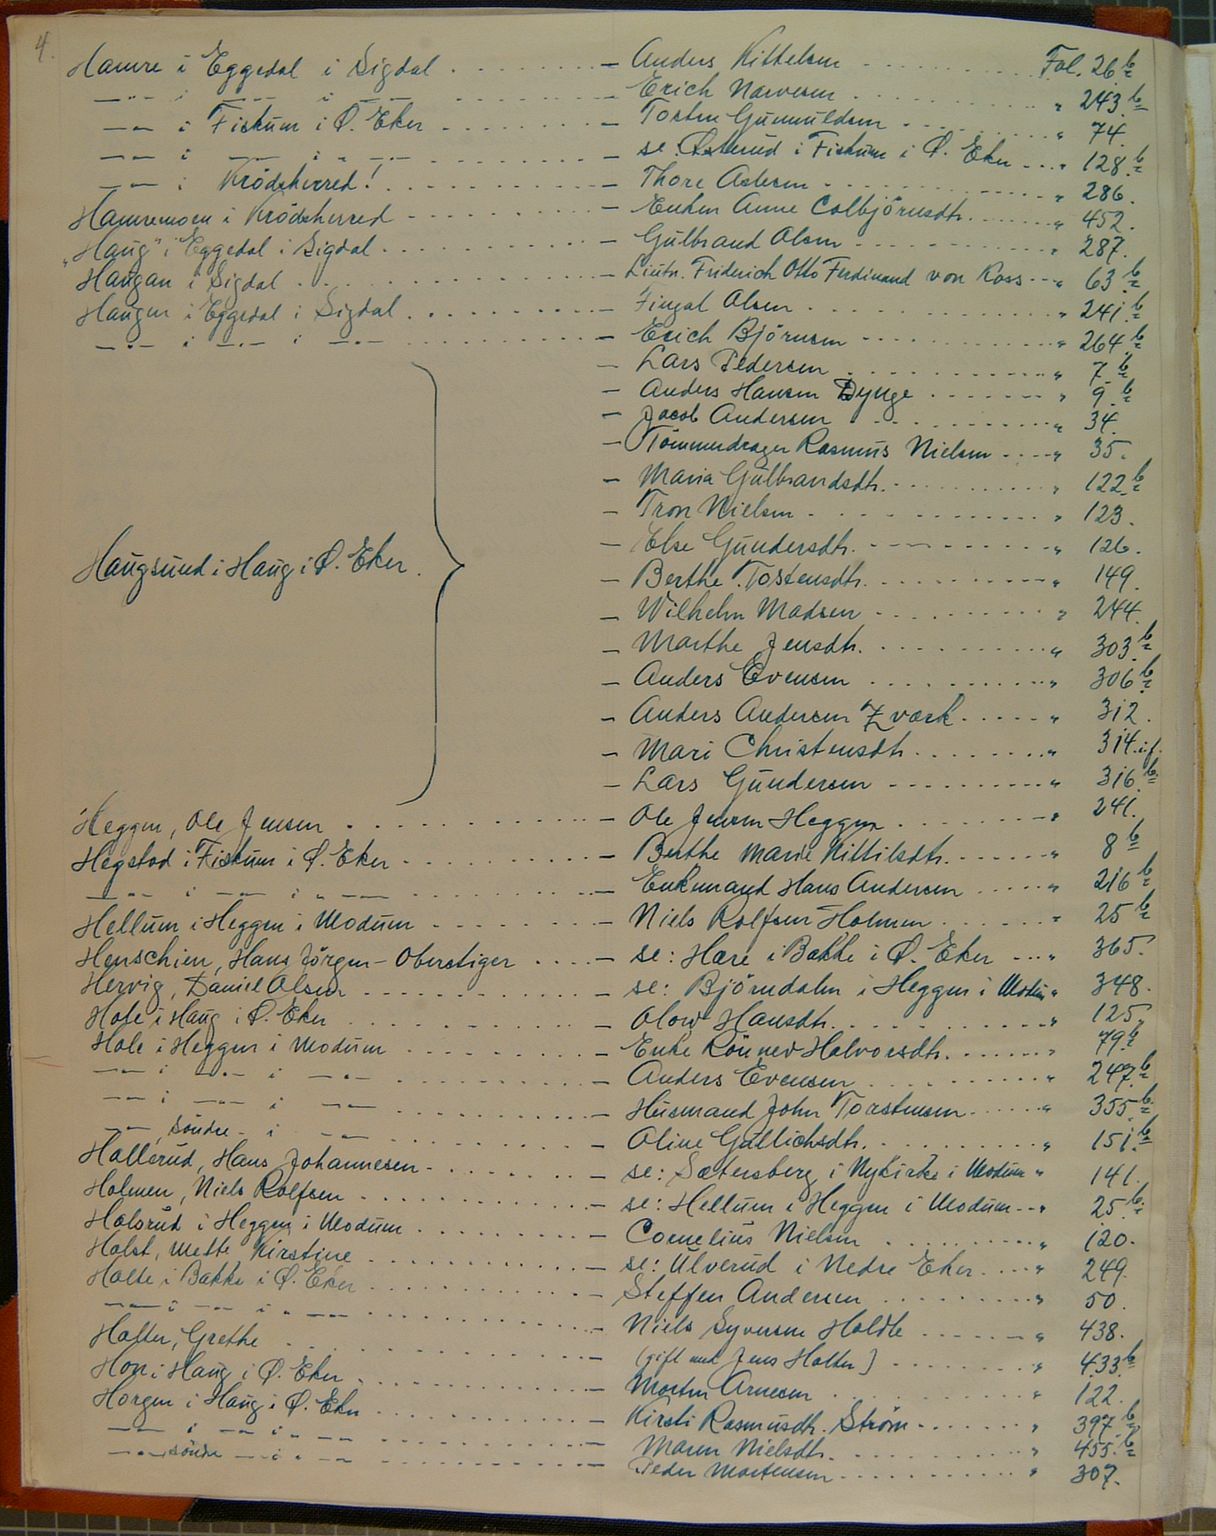 4.
Hamre i Eggedal i Sigdal . . . . . . . — Anders Kittelsen . . . . . . Fol. 26 b
—"— i —"— i —"— . . . . . . . — Erich Narvesen . . . . . . " 243. b
—"— i Fiskum i Ø. Eker . . . . . . . — Tosten Gunnuldsen . . . . . . " 74.
—"— i —"— i " —"— . . . . . . . — se: Østerud i Fiskum i Ø. Eker . . . " 128. b
—"— i Krödsherred! . . . . . . . — Thore Aslesen . . . . . . " 286.
Hamremoen i Krödsherred . . . . . . . — Enken Anne Colbjörnsdtr. . . . . . " 452.
„Haug" i Eggedal i Sigdal . . . . . . . — Gulbrand Olsen . . . . . . " 287.
Haugan i Sigdal . . . . . . . — Lieutn. Friderich Otto Ferdinand von Ross . . . " 63. b
Haugen i Eggedal i Sigdal . . . . . . . — Fingal Olsen . . . . . . " 241. b
—"— i —"— i —"— . . . . . . . — Erich Björnsen . . . . . . " 264. b
— Lars Pedersen . . . . . . " 7. b
— Anders Hansen Dynge . . . . . . " 9. b
— Jacob Andersen . . . . . . " 34.
— Tömmerdrager Rasmus Nielsen . . . . " 35.
— Maria Gulbrandsdtr. . . . . . . " 122. b
— Tron Nielsen . . . . . . " 123.
— Else Gundersdtr. . . . . . . " 126.
Haugsund i Haug i Ø. Eker. — Berthe Tostensdtr. . . . . . . " 149.
— Wilhelm Madsen . . . . . . " 244.
— Marthe Jensdtr. . . . . . . " 303. b
— Anders Evensen . . . . . . " 306. b
— Anders Andersen Zværk . . . . . " 312.
— Mari Christensdtr . . . . . . " 314. i.f.
— Lars Gundersen . . . . . . " 316. b
Heggen, Ole Jensen . . . . . . . — Ole Jensen Heggen . . . . . . " 241.
Hegstad i Fiskum i Ø. Eker . . . . . . . — Berthe Marie Kittilsdtr. . . . . . " 8 b
—"— i —"— i " —"— . . . . . . . — Enkemand Hans Andersen . . . . . " 216 b
Hellum i Heggen i Modum . . . . . . . — Niels Rolfsen Holmen . . . . . . " 25 b
Henschien, Hans Jörgen - Oberstiger . . . . — se: Hære i Bakke i Ø. Eker . . . " 365.
Hervig, Daniel Olsen . . . . . . . — se: Björndalen i Heggen i Modum " 348.
Hole i Haug i Ø. Eker . . . . . . . — Olow Hansdtr. . . . . . . " 125.
Hole i Heggen i Modum . . . . . . . — Enke Rönnev Halvorsdtr. . . . . . " 79. b
—"— i —"— i —"— . . . . . . . — Anders Evensen . . . . . . " 247. b
—"— i —"— i —"— . . . . . . . — Husmand John Torstensen . . . . . " 355. b
—"—, söndre - i —"— . . . . . . . — Oline Gullichsdtr. . . . . . . " 151. b
Hollerud, Hans Johannesen . . . . . . . — se: Sætersberg i Nykirke i Modum " 141.
Holmen, Niels Rolfsen . . . . . . . — se: Hellum i Heggen i Modum . . . " 25. b
Holsrud i Heggen i Modum . . . . . . . — Cornelius Nielsen . . . . . . " 120.
Holst, Mette Kirstine . . . . . . . — se: Ulverud i Nedre Eker . . . . " 249.
Holte i Bakke i Ø. Eker . . . . . . . — Steffen Andersen . . . . . . " 50.
—"— i —"— i " —"— . . . . . . . — Niels Syversen Holdte . . . . . . " 438.
Holter, Grethe . . . . . . . — (gift med Jens Holter) . . . . . . " 433. b
Hon i Haug i Ø. Eker . . . . . . . — Morten Arnesen . . . . . . " 122.
Horgen i Haug i Ø. Eker . . . . . . . — Kirsti Rasmusdtr. Ström . . . . . . " 397. b
—"— i —"— i " —"— . . . . . . . — Maren Nielsdtr. . . . . . . " 455. b
—"— söndre —"— i " —"— . . . . . . . — Peder Mortensen . . . . . . " 307.